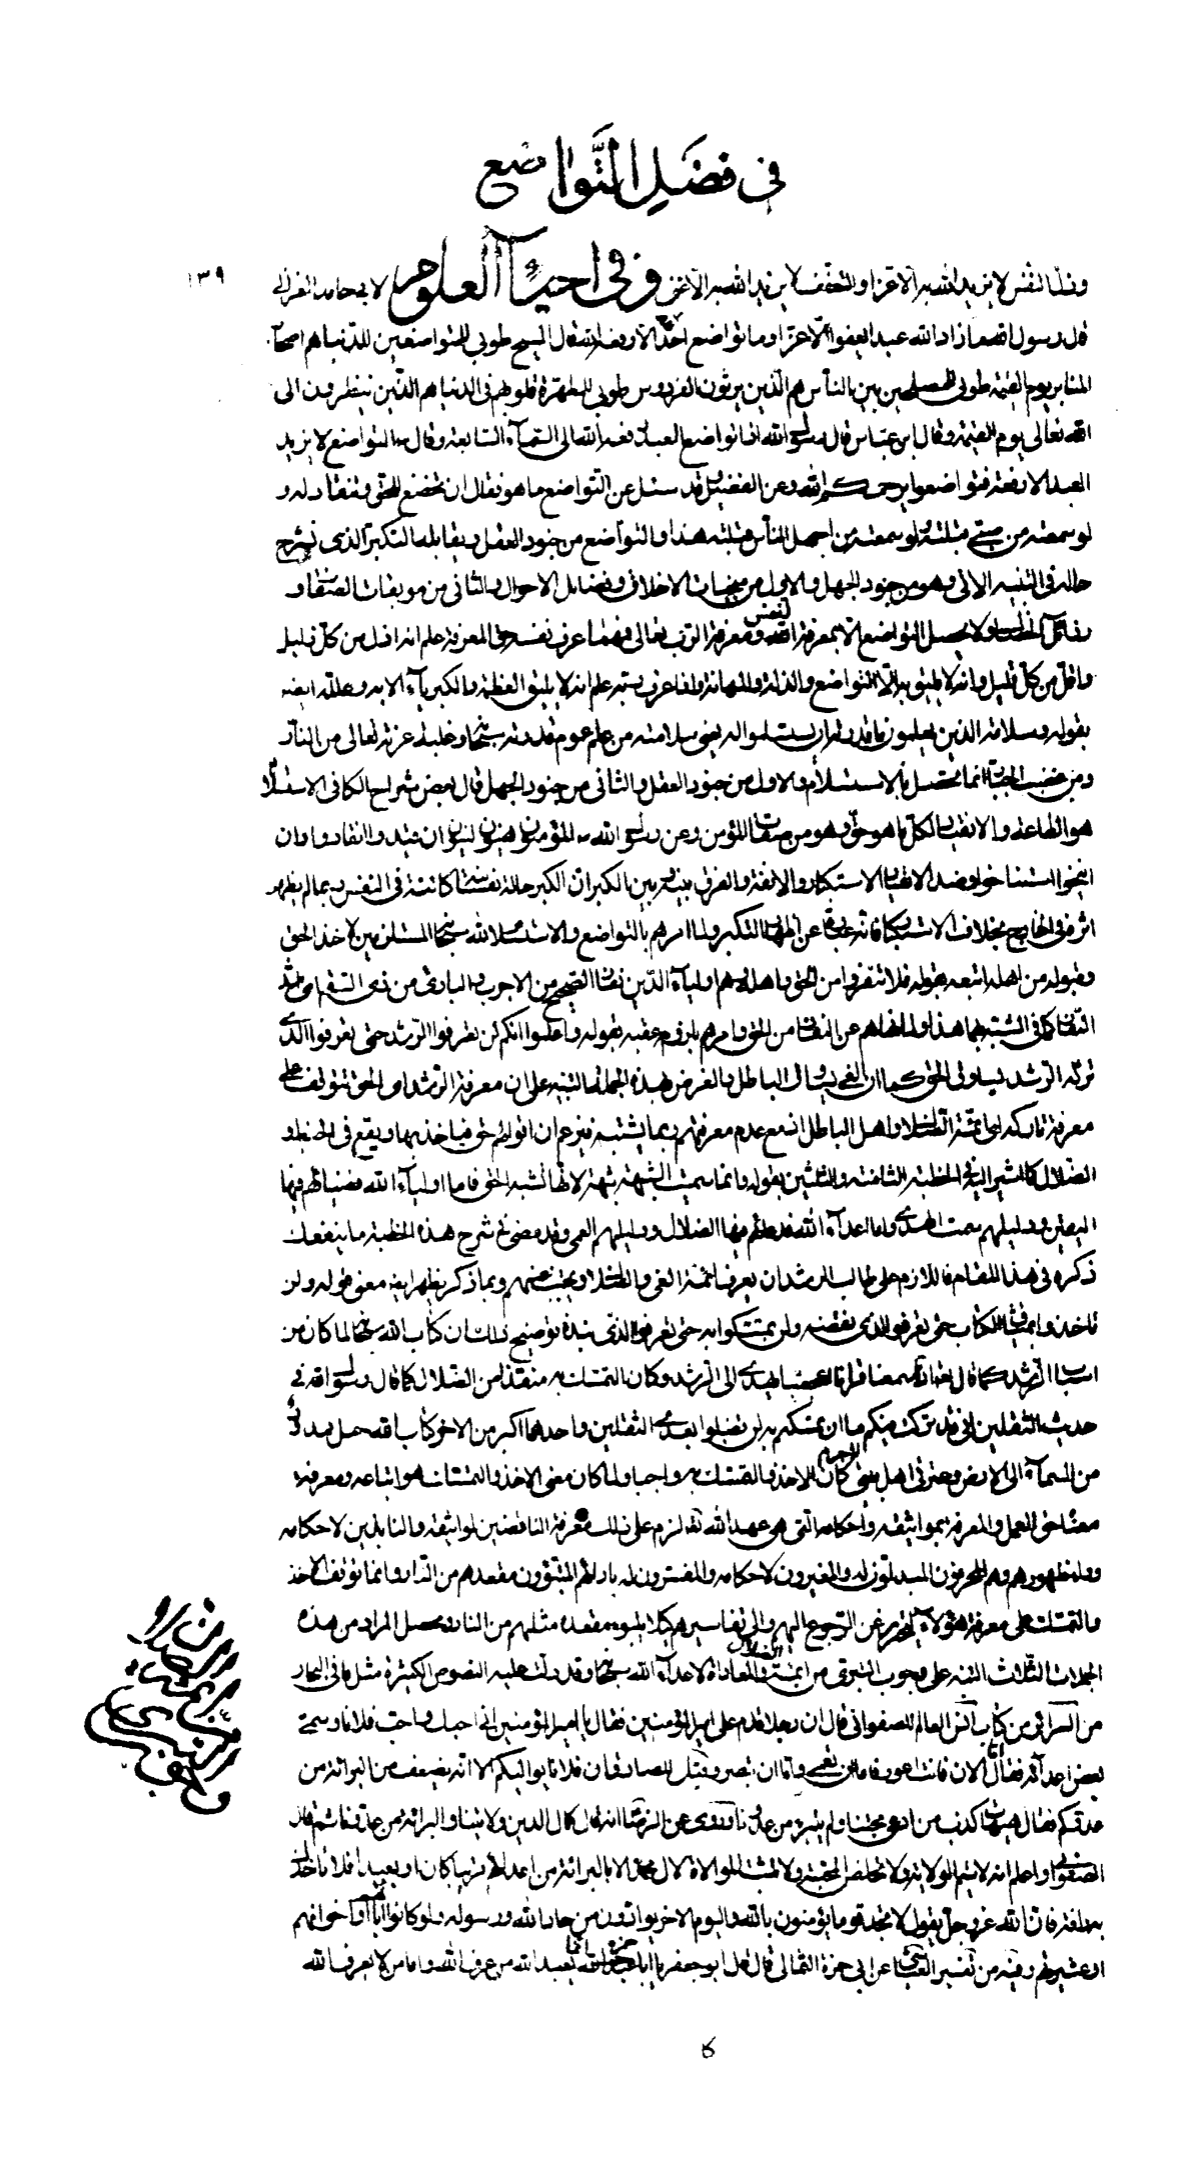 في فضل التواضع
١٣٩
لا يزيد الله به الا عزا والتعفف لا يزيد الله به الا عزا وفي احياء العلوم لابي حامد الغزالي
قال رسول الله ما زاد الله عبدا بعفو الا عزا وما تواضع احد لله الا رفعه الله قال المسيح طوبى للمتواضعين في الدنيا هم اصحاب
المنابر يوم القيمة طوبى للمصلحين بين الناس هم الذين يرثون الفردوس طوبى للمطهرة قلوبهم في الدنيا هم الذين ينظرون الى
الله تعالى يوم القيمة وقال ابن عباس قال رسول الله اذا تواضع العبد رفعه الله الى السماء السابعة وقال التواضع لا يزيد
العبد الا رفعة فتواضعوا يرحمكم الله وعن الفضيل وقد سئل عن التواضع ما هو فقال ان تخضع للحق وتنقاد له و
لو سمعته من صبي قبلته ولو سمعته من اجهل الناس قبلته هذا والتواضع من جنود العقل ويقابله التكبر الذي نشرح
حاله في التنبيه الاتي وهو من جنود الجهل والاول من منجيات الاخلاق وفضائل الاحوال والثاني من موبقات الصفات و
ولا يحصل التواضع الا بمعرفة النفس ومعرفة الرب تعالى فمهما عرف نفسه حق المعرفة علم انه اذل من كل ذليل
واقل من كل قليل وانه لا يليق به الا التواضع والذلة والمهانة واذا عرف ربه علم انه لا يليق العظمة والكبرياء الا به وعلله ايضا
بقوله وسلامة الذين يعلمون ما قدرته ان يستسلموا له يعني سلامة من علم عموم قدرته سبحانه وغلبة عزته تعالى من النار
ومن غضب الجبار انما تحصل بالاستسلام والاول من جنود العقل والثاني من جنود الجهل قال بعض شراح الكافي الاستسلام
هو الطاعة والانقياد لكل ما هو حق وهو من صفات المؤمن وعن رسول الله المؤمنون هينون لينون ان قيدوا انقادوا وان
انيخوا استناخوا وضد الانقياد الاستكبار والانفة والفرق بينه وبين الكبر ان الكبر حالة نفسانية كائنة في النفس ربما لم يظهر
اثره في الخارج بخلاف الاستكبار فانه عبارة عن اظهار التكبر ولما امرهم بالتواضع والاستسلام لله سبحانه المستلزمين لاخذ الحق
وقبوله من اهله اتبعه بقوله فلا تنفروا من الحق واهله وهم اولياء الدين نفار الصحيح من الاجرب والباري من ذي السقم
عن النفار من الحق وامرهم بلزومه عقبه بقوله واعلموا انكم لن تعرفوا الرشد حتى تعرفوا الذي
تركه الرشد يساوق الحق كما ان الغي يساوق الباطل والغرض بهذه الجملة التنبيه على ان معرفة الرشد اي الحق تتوقف على
معرفة تاركه اي ائمة الضلال واهل الباطل اذ مع عدم معرفتهم ربما يشتبه فيزعم ان اقوالهم حق فياخذ بها ويقع في الخبط و
الضلال كما اشير اليه في الخطبة الثامنة والثلثين بقوله وانما سميت الشبهة شبهة لانها تشبه الحق فاما اولياء الله فضياؤهم فيها
اليقين ودليلهم سمت الهدى واما اعداء الله فدعاؤهم فيها الضلال ودليلهم العمى وقد مضى في شرح هذه الخطبة ما ينفعك
ذكره في هذا المقام فاللازم على طالب الرشد ان يعرف ائمة الغي والضلال ويجتنب منهم وبما ذكر يظهر ايضا معنى قوله ولن
تاخذوا بميثاق الكتاب حتى تعرفوا الذي نقضه ولن تمسكوا به حتى تعرفوا الذي نبذه توضيح ذلك ان كتاب الله سبحانه لما كان من
اسباب الرشد كما قال تعالى انا سمعنا قرانا عجبا يهدي الى الرشد وكان التمسك به منقذا من الضلال كما قال رسول الله في
حديث الثقلين اني قد تركت فيكم ما ان تمسكتم به لن تضلوا بعدي الثقلين واحدهما اكبر من الاخر كتاب الله حبل ممدود
من السماء الى الارض وعترتي اهل بيتي كان الاخذ والتمسك به واجبا ولما كان معنى الاخذ والتمسك هو اتباعه ومعرفة
معناه حق العمل والمعرفة بمواثيقه واحكامه التي هي عهد الله لزم على ذلك معرفة الناقضين لمواثيقه والنابذين لاحكامه
وراء ظهورهم وهم المحرفون المبدلون له والمغيرون لاحكامه والمفسرون له بارائهم المتبوؤن مقعدهم من النار وانما توقف الاخذ
والتمسك على معرفة هؤلاء ليحترز عن الرجوع اليهم والى تفاسيرهم كيلا يتبوء مقعده مثلهم من النار ومحصل المراد من هذه
الجملات الثلاث التنبيه على وجوب التبري من ائمة الضلال والمعاداة لاعداء الله سبحانه وقد دلت عليه النصوص الكثيرة مثل ما في البحار
من السرائر من كتاب انس العالم للصفواني قال ان رجلا قدم على امير المؤمنين فقال يا امير المؤمنين اني احبك واحب فلانا وسمى
بعض اعدائه فقال اما الان فانت اعور فاما ان تعمى واما ان تبصر وقيل للصادق ان فلانا يواليكم الا انه يضعف من البرائة من
عدوكم فقال هيهات كذب من ادعى محبتنا ولم يتبرء من عدونا وروى عن الرضا انه قال كمال الدين ولايتنا والبرائة من عدونا ثم قال
الصفواني واعلم انه لا يتم الولاية ولا تخلص المحبة ولا تثبت المودة لال محمد الا بالبرائة من اعدائهم قريبا كان او بعيدا فلا تاخذك
به رافة فان الله عز وجل يقول لا تجد قوما يؤمنون بالله واليوم الاخر يوادون من حاد الله ورسوله ولو كانوا اباءهم او ابناءهم او اخوانهم
او عشيرتهم وفيه من تفسير العياشي عن ابي حمزة الثمالي قال قال ابو جعفر يا ابا حمزة انما يعبد الله من عرف الله واما من لا يعرف الله